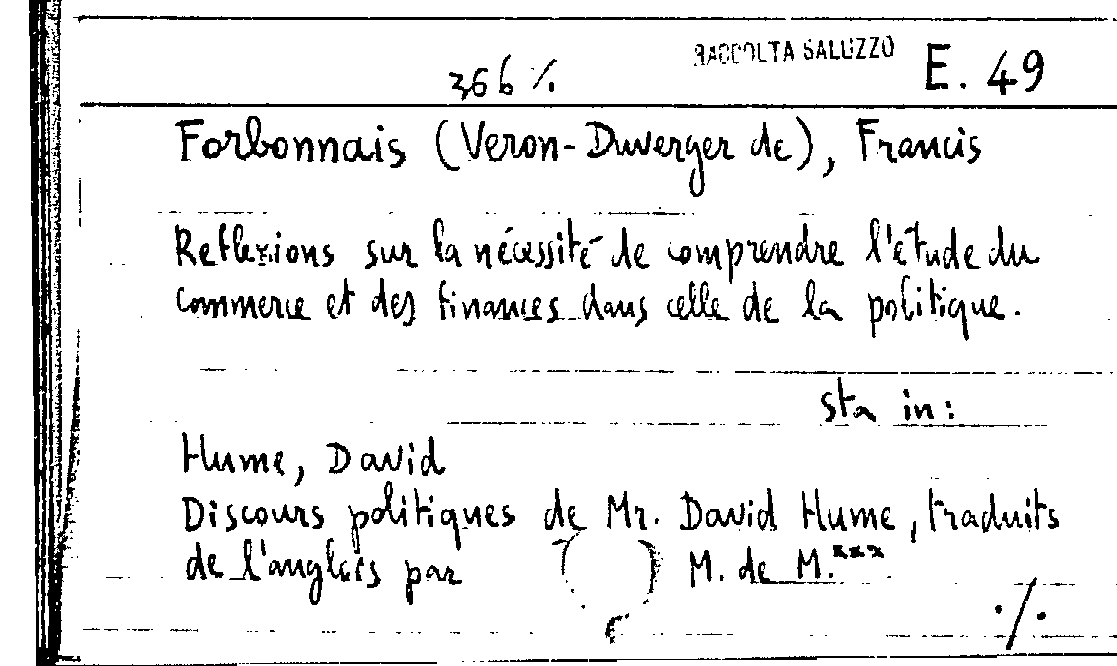 RACCOLTA SALUZZO E. 49
366 ./.
Forbonnais (Veron-Duverger de), Francis
Reflexions sur la nécessité de comprendre l'étude du
commerce et des finances dans celle de la politique.
sta in:
Hume, David
Discours politiques de Mr. David Hume, traduits
de l'anglois par M. de M.xxx
./.